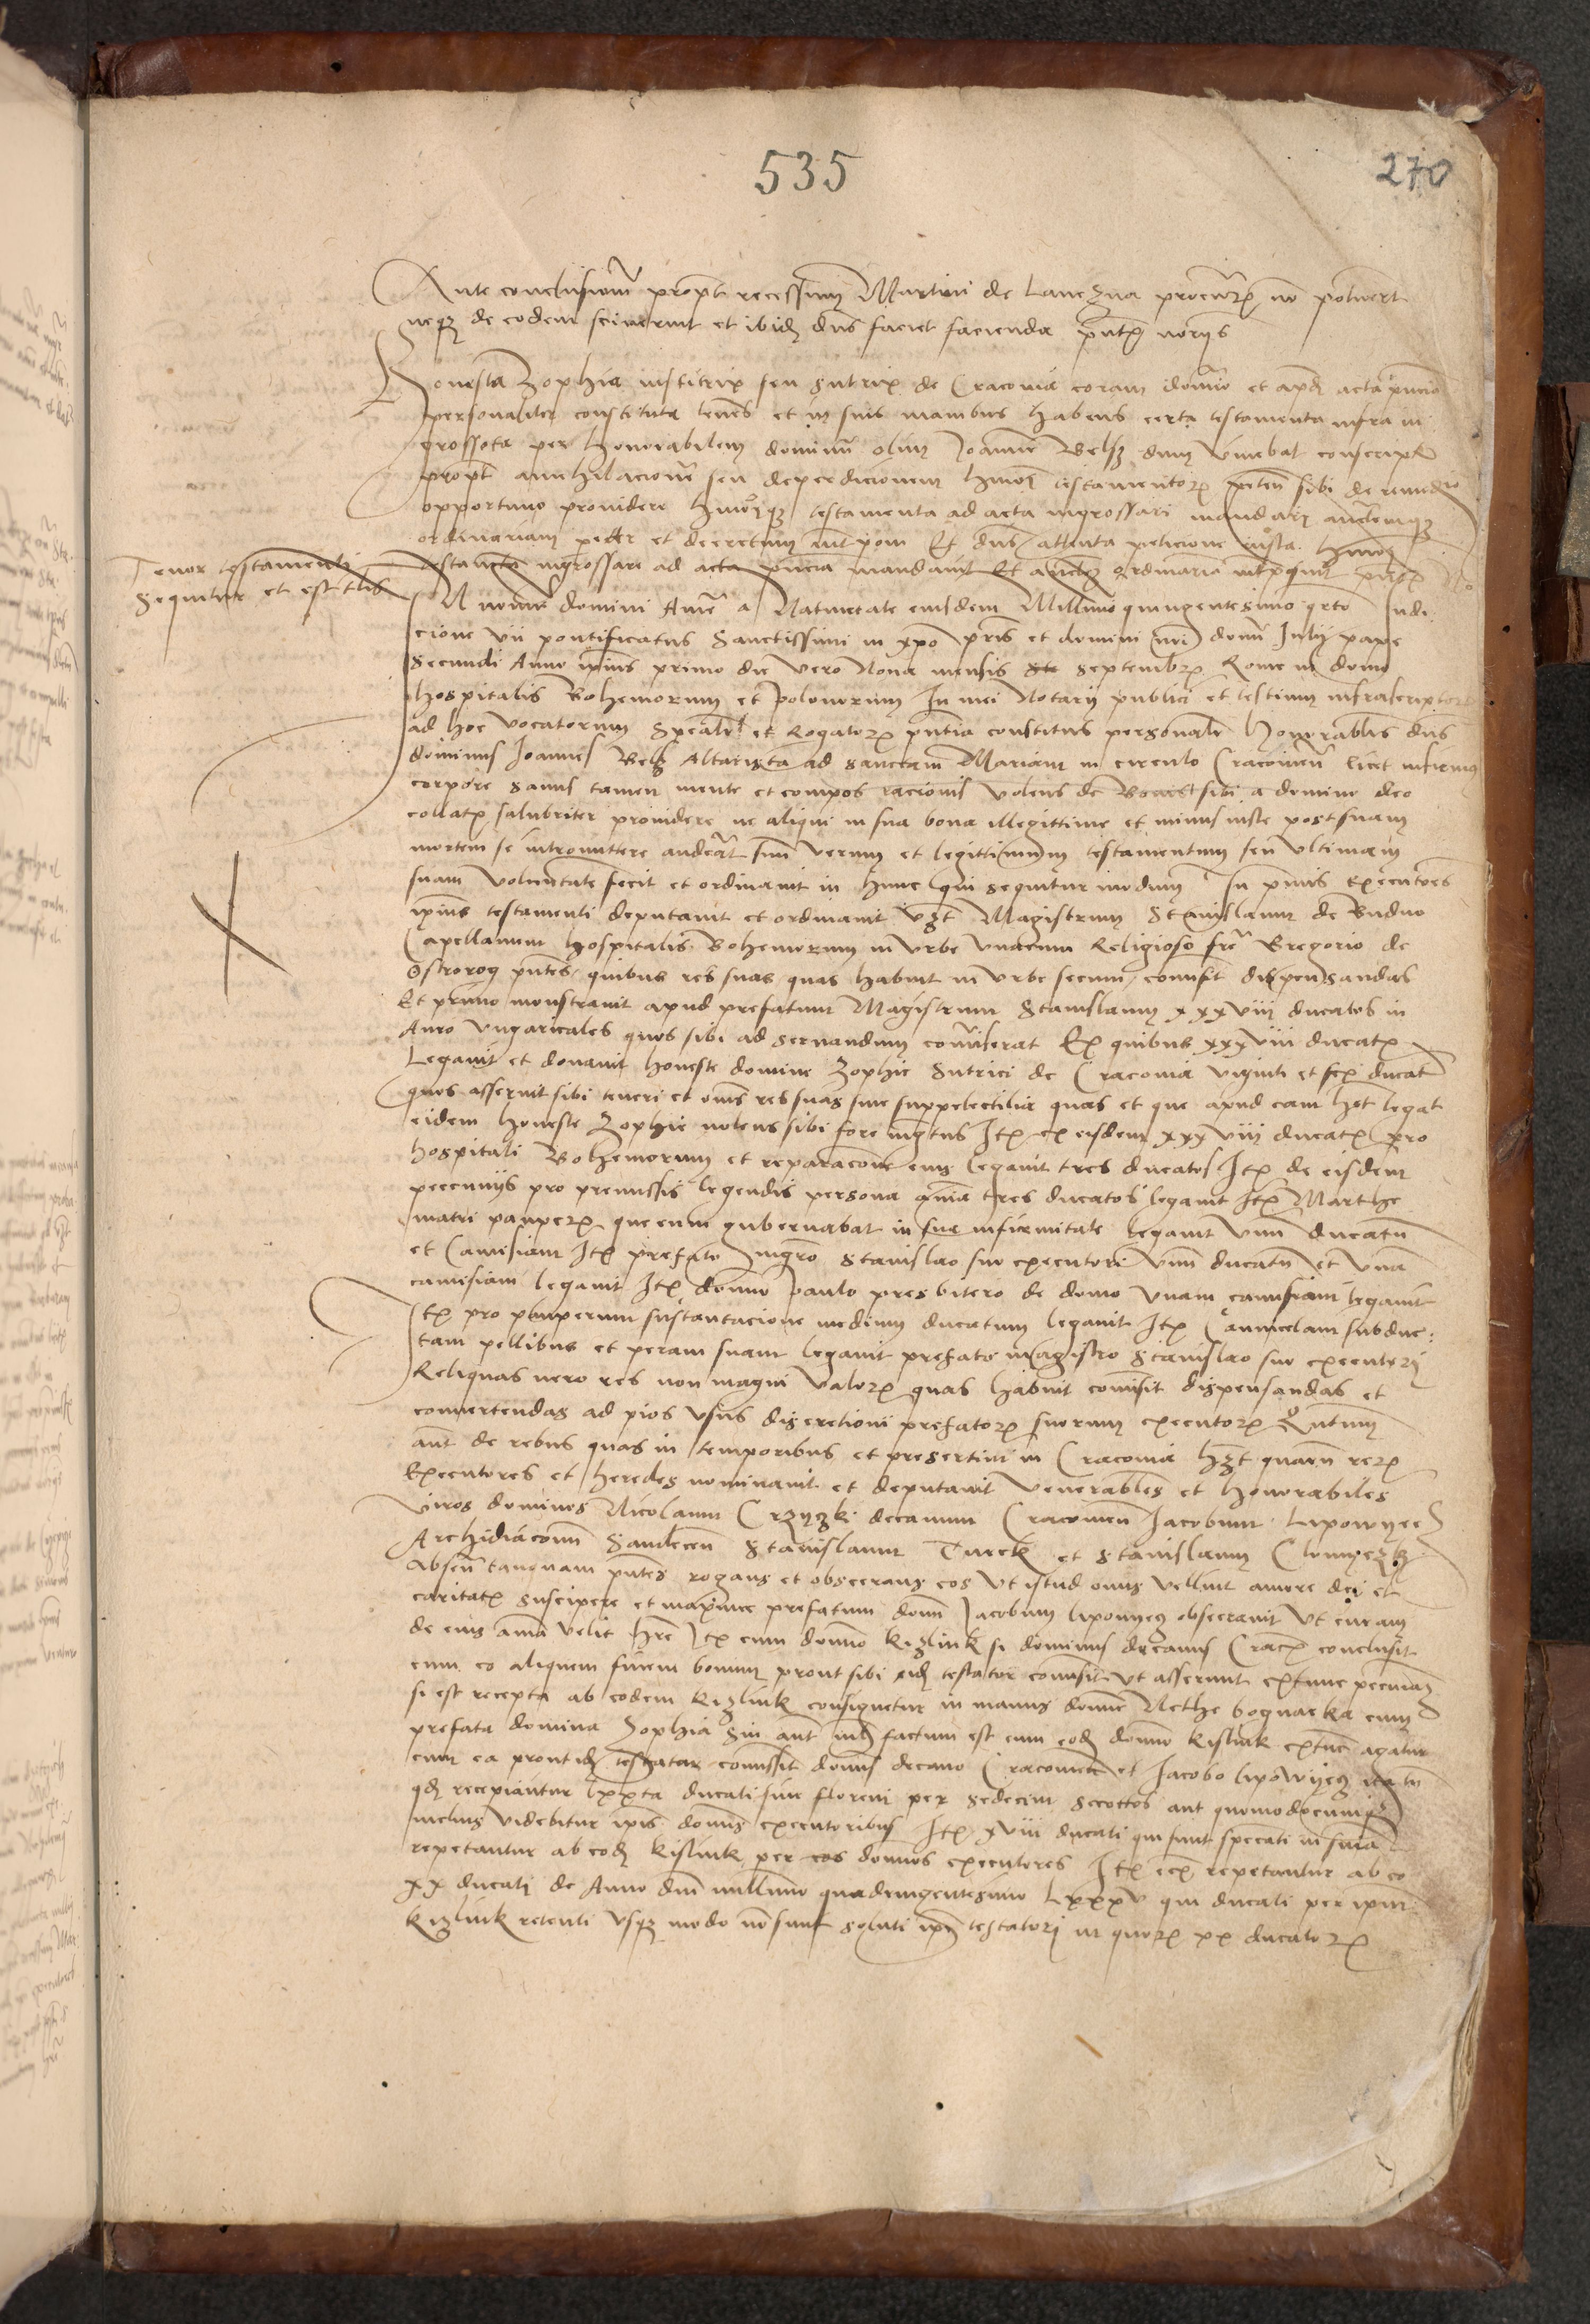 535
270
Ante conclusionē propt recessum Martini de Lanczna procurꝝ nō potuert
neqꝫ de eodem sciverunt et ibidꝫ dns faciet facienda pntꝫ noriis
Honesta Zophia institrix seu sutrix de Cracovia coram domīo et apd acta
personaliter constituta tenens et in suis manibus habens certa testamenta infra in
grossata per honorabilem dominū olim Joannē Belsz dum vivebat conscripta
propt annihilacionē seu deperdicionem hmoi testamentorꝝ petens sibi de remedio
opportuno providere hmoiqꝫ testamenta ad acta ingrossari mandari auctemqꝫ
ordinariam et decretum interponi Et dns attenta peticione iusta hmoi
testamenta ingrossari ad acta pncia mandavit Et auctem ordinariā interposuit
Tenor testamenti
sequitur et est talis
In nomine domini Amē a Nativitate eiusdem Millimo quingentesimo qrto Indi
cione vii pontificatus Sanctissimi in xpo pris et domini nri domi Julii pape
Secundi Anno ipius primo die vero Nona mensis septembrꝫ Rome in domo
hospitalis Bohemorum et Polonorum In mei Notarii publici et testium infrascriptorꝝ
ad hoc vocatorum specialr et Rogatorꝝ pntia constitus personalr honorablis dns
dominus Joannes Belsz Altarista ad sanctam Mariam in circulo Cracovien licet infirmus
corpore sanus tamen mente et compos racionis volens de bonis sibi a domino deo
collatꝫ salubriter providere ne aliqui in sua bona illegittime et minus iuste post suam
mortem se intromittere audeāt suū verum et legittimum testamentum seu ultimam
suam voluntatē fecit et ordinavit in hunc qui sequitur modum In pmis executores
ipius testamenti deputavit et ordinavit vzt Magistrum Stanislaum de Budno
Capellanum hospitalis Bohemorum in urbe unacum Religioso fre Gregorio de
Ostrorog pntes quibus res suas quas habuit in urbe secum comisit dispensandas
Et primo monstravit apud prefatum Magistrum Stanislaum xxxviii ducatos in
Auro ungaricales quos sibi ad servandum comiserat Ex quibus xxxviii ducatꝫ
Legavit et donavit honeste domine Zophie Sutrici de Cracovia viginti et sex ducat
quos asseruit sibi teneri et oms res suas sive suppelectilia quas et que apud eam het legat
eidem honeste Zophie nolens sibi fore ingtus Itꝫ ex eisdem xxxviii ducatꝫ pro
hospitali Bohemorum et reparacione eius legavit tres ducatos Itꝫ de eisdem
pecuniis pro premissis legendis persona tres ducatos legavit Itꝫ Marthe
matri pauperꝝ que eum gubernabat in sua infirmitate legavit unū ducatū
et Camisiam Itꝫ prefato mgro Stanislao suo executori unū ducatū et unā
camisiam legavit Itꝫ domino Paulo presbitero de domo unam camisiam legavit
Itꝫ pro pauperum sustentacione medium ducatum legavit Itꝫ subduc:
tam pellibus et peram suam legavit prefato magistro Stanislao suo executori
Reliquas vero res non magni valorꝫ quas habuit comisit dispensandas et
convertendas ad pios usus discretioni prefatorꝝ suorum executorꝝ Quntum
aut de rebus quas in temporibus et presertim in Cracovia hzt rerꝝ
Executores et heredes nominavit et deputavit venerabiles et honorabiles
viros dominos Nicolaum Crzyczki decanum Cracovien Jacobum Lipowyecz
Archidiaconū Sandecen Stanislaum Turek et Stanislaum
absen tanquam pntes rogans et obsecrans eos ut istud onus vellint amore dei et
caritatꝫ suscipere et maxime prefatum domi Jacobum lipowyecz obsecravit ut curam
de eius aīma velit hre Itꝫ cum domīo Kizlink si dominus decanus Cracꝫ conclusit
cum eo aliquem finem bonum prout sibi idꝫ testator comisit ut asseruit extunc pecuniaꝫ
si est recepta ab eodem Kizlink consignetur in manus domine Nethe bognacka cum
prefata domina Zophia Sin aut nil factum est cum eodꝫ domīo Kislink extunc agatur
cum ea prout idꝫ testator comissit domīs decano Cracovien et Jacobo lipowyecz ita tn
qdꝫ recipiantur lxxta ducati sive floreni per sedecim scottos aut quomodocumqꝫ
melius videbitur ipis domīs executoribus Itꝫ xviii ducati qui sunt
repetantur ab eodꝫ Kislink per eos domīos executores Itꝫ repetantur ab eo
xx ducati de Anno dni millimo quadringentesimo lxxxv qui ducati per ipum
Kizlink retenti usqꝫ modo nō sunt soluti ipi testatori in quorꝝ xx ducatorꝝ